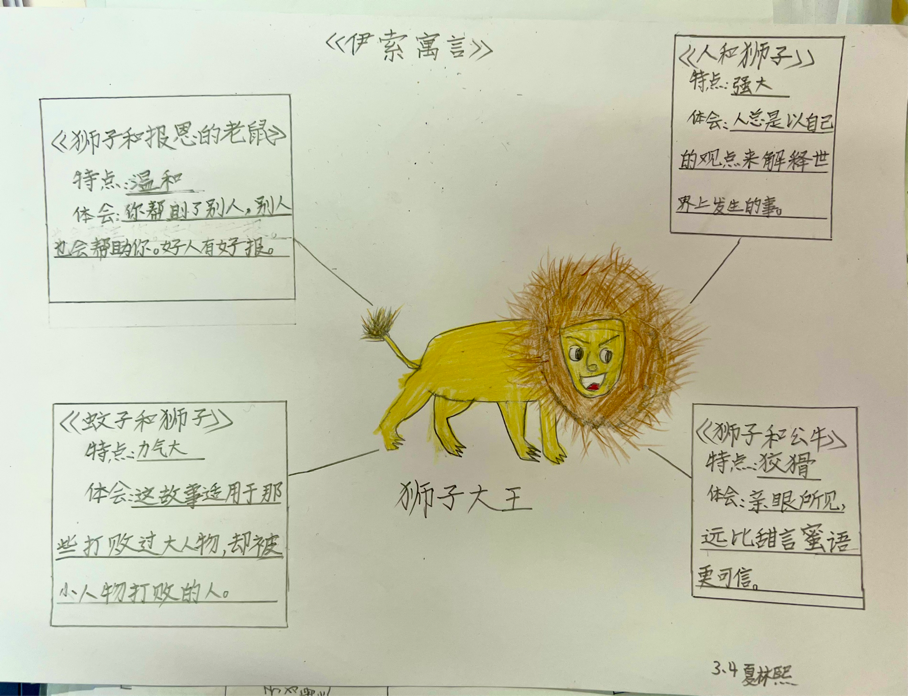 《伊索寓言》
《狮子和报恩的老鼠》
特点:温和
体会:你帮助了别人,别人
也会帮助你。好人有好报。
《人和狮子》
特点:强大
体会:人总是以自己
的观点来解释世
界上发生的事。
《蚊子和狮子》
特点:力气大
体会:这故事适用于那
些打败过大人物,却被
小人物打败的人。
狮子大王
《狮子和公牛》
特点:狡猾
体会:亲眼所见,
远比甜言蜜语
更可信。
3.4 夏林熙